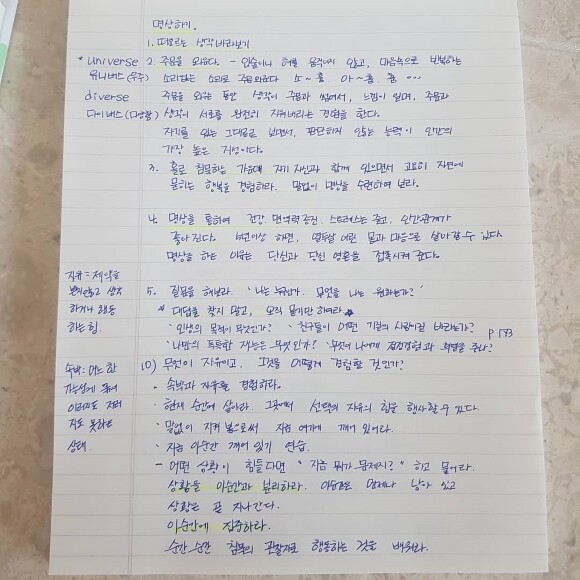 명상하기.
1. 떠오르는 생각 바라보기
* universe
유니버스(우주)
diverse
다이버스(다양함)
2. 주문을 외운다. - 입술이나 혀를 움직이지 않고, 마음속으로 반복하는
소리없는 소리로 주문외운다 소~흠 아~흠, 흠 ...
주문을 외우는 동안 생각이 주문과 섞여서, 느낌이 일며, 주문과
생각이 서로를 완전히 지워버리는 경험을 한다.
자기를 있는 그대로 보면서, 판단하지 않는 능력이 인간의
가장 높은 지성이다.
3. 홀로 침묵하는 가운데 자기 자신과 함께 있으면서 고요히 자연에
묻히는 행복을 경험하라. 말없이 명상을 수련하여 보라.
4. 명상을 통하여 건강, 면역력 증진, 스트레스는 줄고, 인간관계가
좋아진다. 이상 하면, 열두살 어린 몸과 마음으로 살아갈 수 있다.
명상을 하는 이유는 당신과 당신 영혼을 접촉시켜 준다.
자유 : 제약을
받지않고 생각
하거나 행동
하는 힘.
5. 질문을 해보라. '나는 누구인가. 무엇을 나는 원하는가?'
* 대답을 찾지 말고, 오직 묻기만 하여라 *
'인생의 목적이 무엇인가? '친구들이 어떤 기질의 사람이길 바라는가?
p 183
'나만의 독특한 재능은 무엇인가? '무엇이 나에게 절정경험과 희열을 주나?
속박 : 어느 한
가능성에 묶여
이러지도 저러
지도 못하는
상태.
10) 무엇이 자유이고, 그것을 어떻게 경험할 것인가?
· 속박과 자유를 경험하라.
· 현재 순간에 살아라. 그곳에서 선택의 자유의 힘을 행사할 수 있다.
· 말없이 지켜 봄으로써 지금 여기에 깨어 있어라.
· 지금 이순간 깨어 있기 연습.
- 어떤 상황이 힘들다면 "지금 뭐가 문제지?" 하고 물어라.
상황을 이순간과 분리하라. 이순간은 언제나 남아 있고
상황은 곧 지나간다.
이순간에 집중하라.
순간 순간 침묵의 관찰자로 행동하는 것을 배워라.